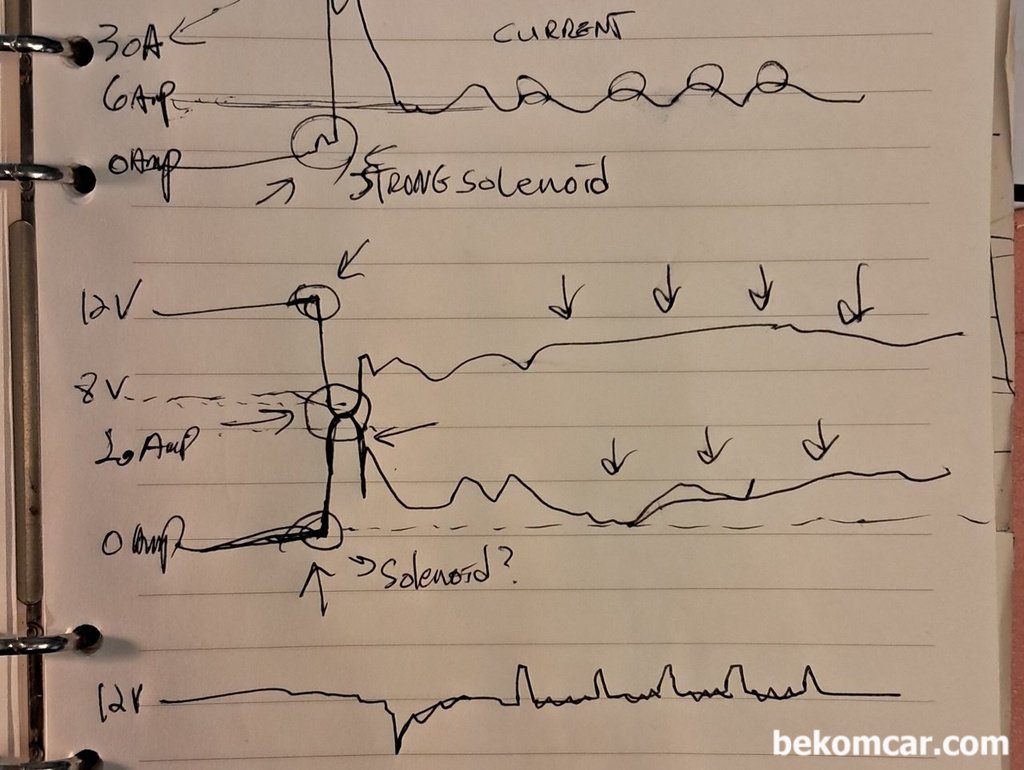 CURRENT
30A
6Amp
0Amp
STRONG Solenoid
12V
8V
0 Amp
Solenoid?
12V
bekomcar.com